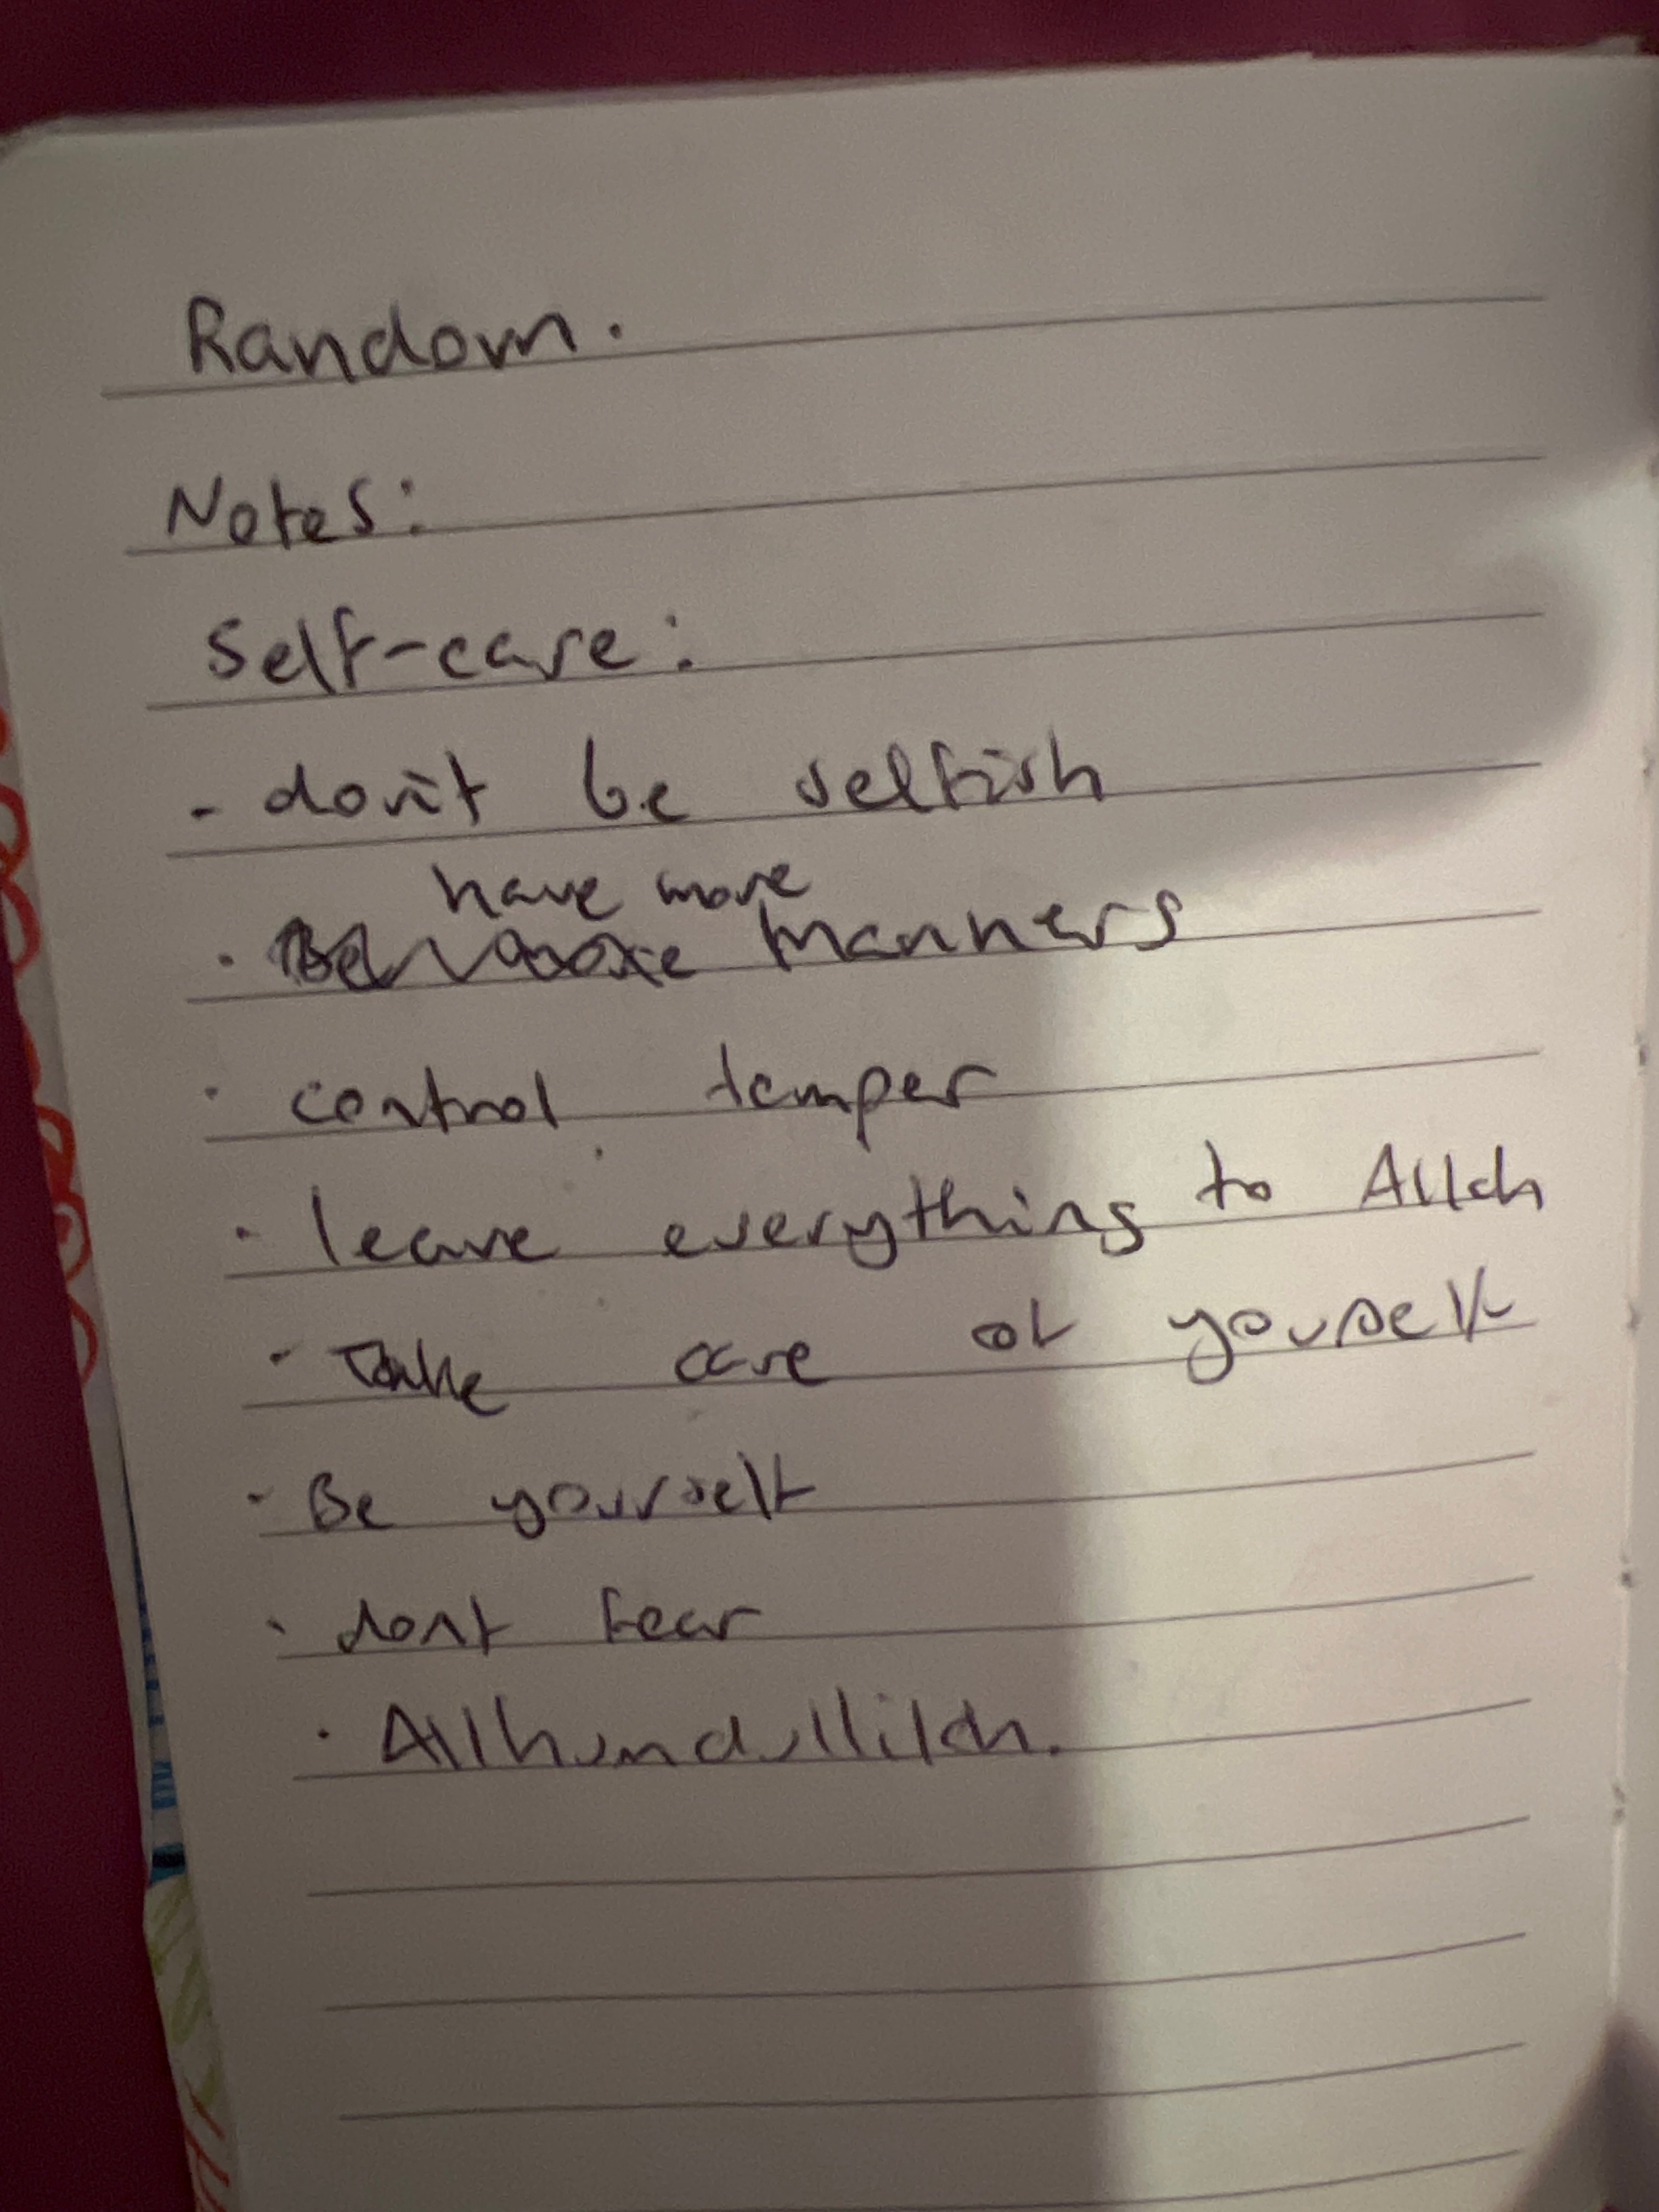 Random.
Notes:
Self-care:
- don't be selfish
have more
· manners
· control temper
· leave everything to Allah
- Take care of yourself
- Be yourself
· dont fear
· Allhumdullilah.